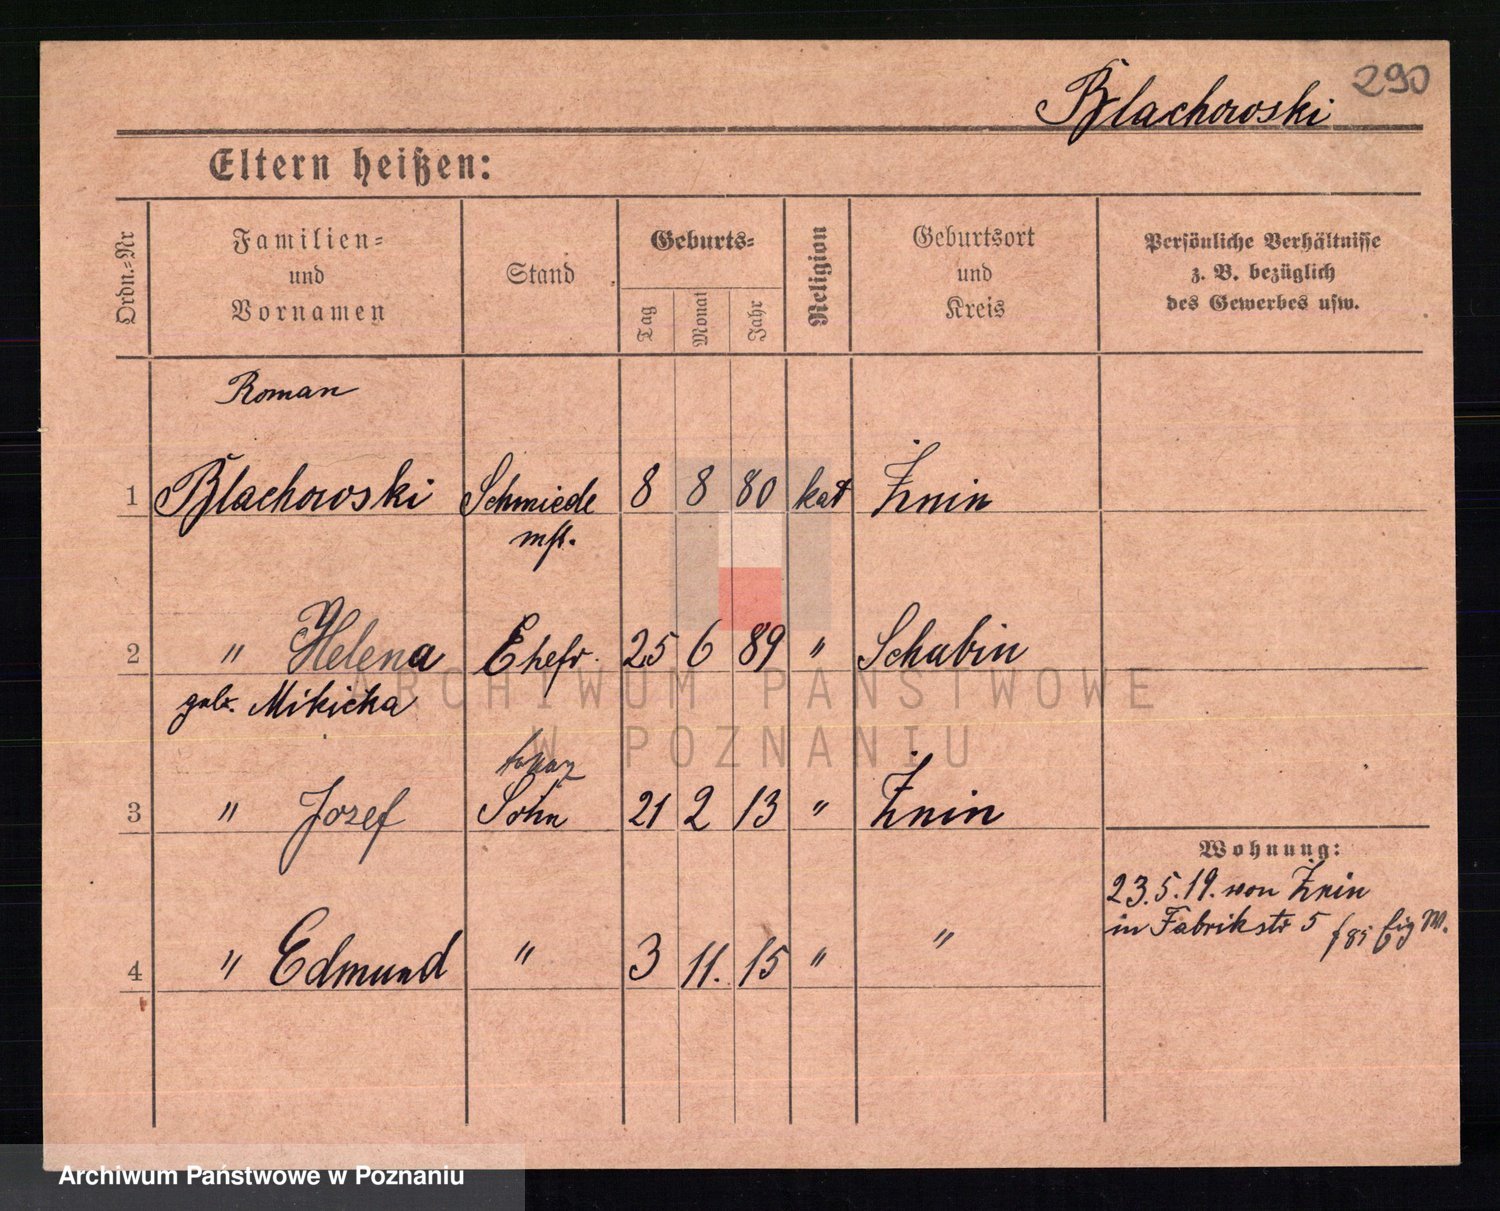 290
Blachowski
Eltern heißen:
Ordn.-Nr
Familien-
und
Vornamen
Stand
Geburts-
Tag
Monat
Jahr
Religion
Geburtsort
und
Kreis
Persönliche Verhältnisse
z. B. bezüglich
des Gewerbes usw.
Roman
1 Blachowski Schmiede 8 8 80 kat Żnin
mst.
2 " Helena Ehefr. 25 6 89 " Schubin
geb. Mikicka
tokarz
3 " Jozef Sohn 21 2 13 " Żnin
Wohnung:
23.5.19. von Żnin
in Fabrikstr 5
4 " Edmund " 3 11. 15 " "
ARCHIWUM PAŃSTWOWE
W POZNANIU
Archiwum Państwowe w Poznaniu